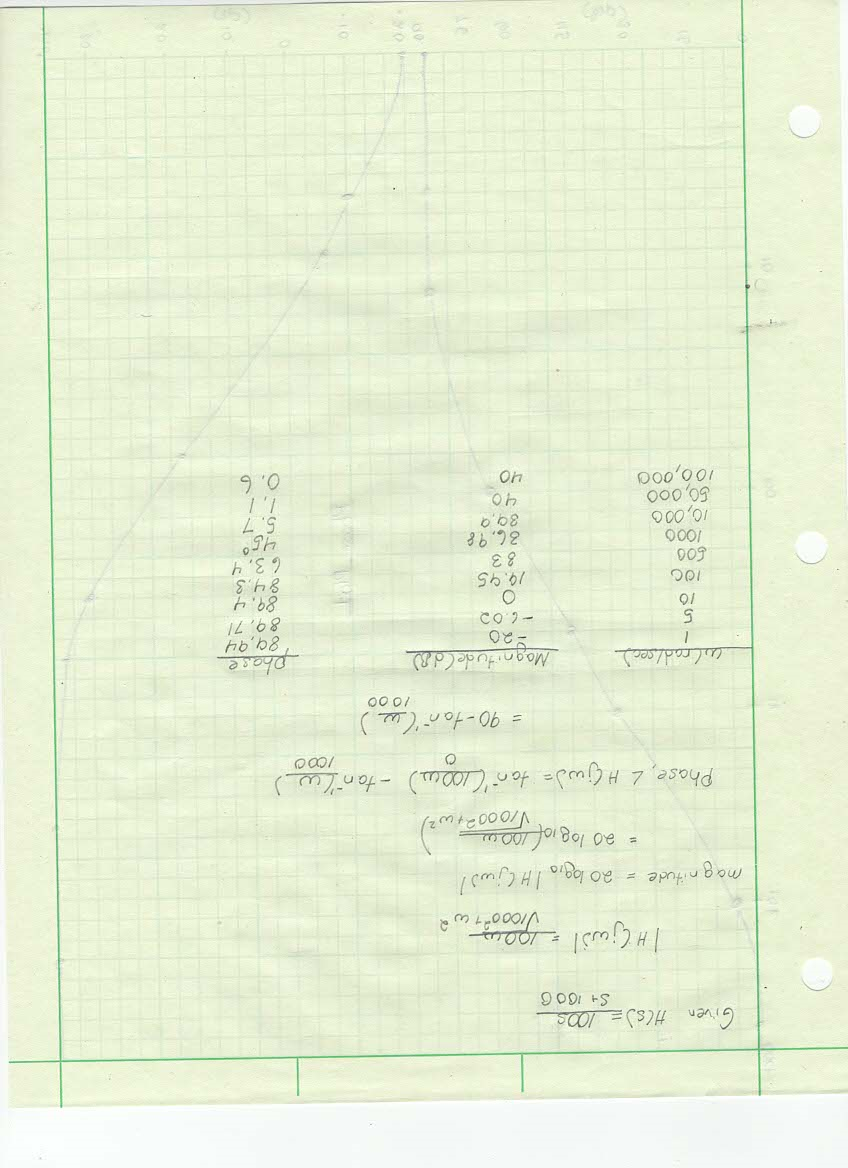 Given H(s) = 100s
s+1000
|H(jω)| = 100ω
√1000²+ω²
magnitude = 20log₁₀ |H(jω)|
= 20 log₁₀ (100ω
√1000²+ω²)
Phase, ∠ H(jω) = tan⁻¹(100ω) - tan⁻¹(ω)
0 1000
= 90 - tan⁻¹(ω)
1000
ω(rad/sec) Magnitude(dB) phase
1 -20 89.94
5 -6.02 89.71
10 0 89.4
100 19.95 84.3
500 33 63.4
1000 36.98 45°
10,000 39.9 5.7
50,000 40 1.1
100,000 40 0.6